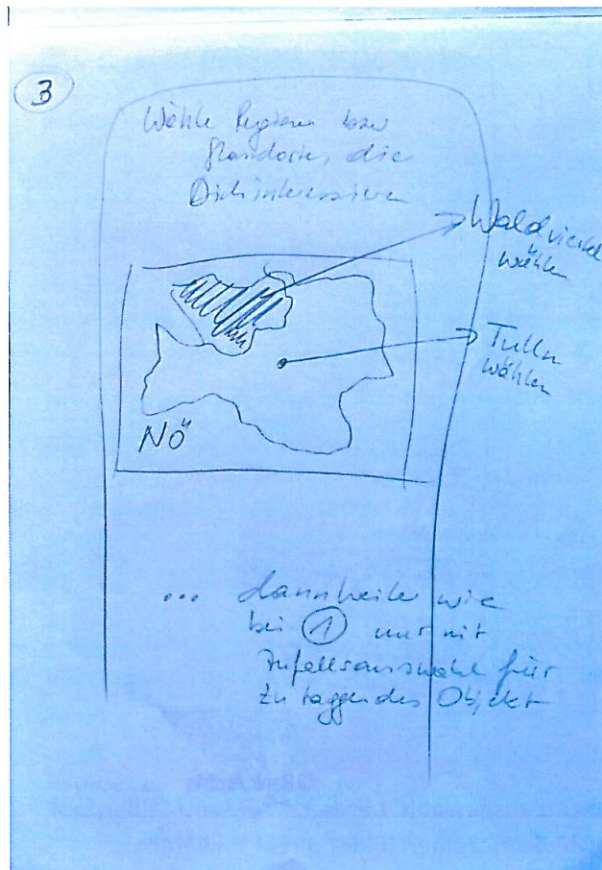 3
Wähle Regionen bzw
Standorte, die
Dich interessieren
Waldviertel
wählen
Tulln
wählen
NÖ
... dann weiter wie
bei 1 nur mit
Zufallsauswahl für
zu taggendes Objekt